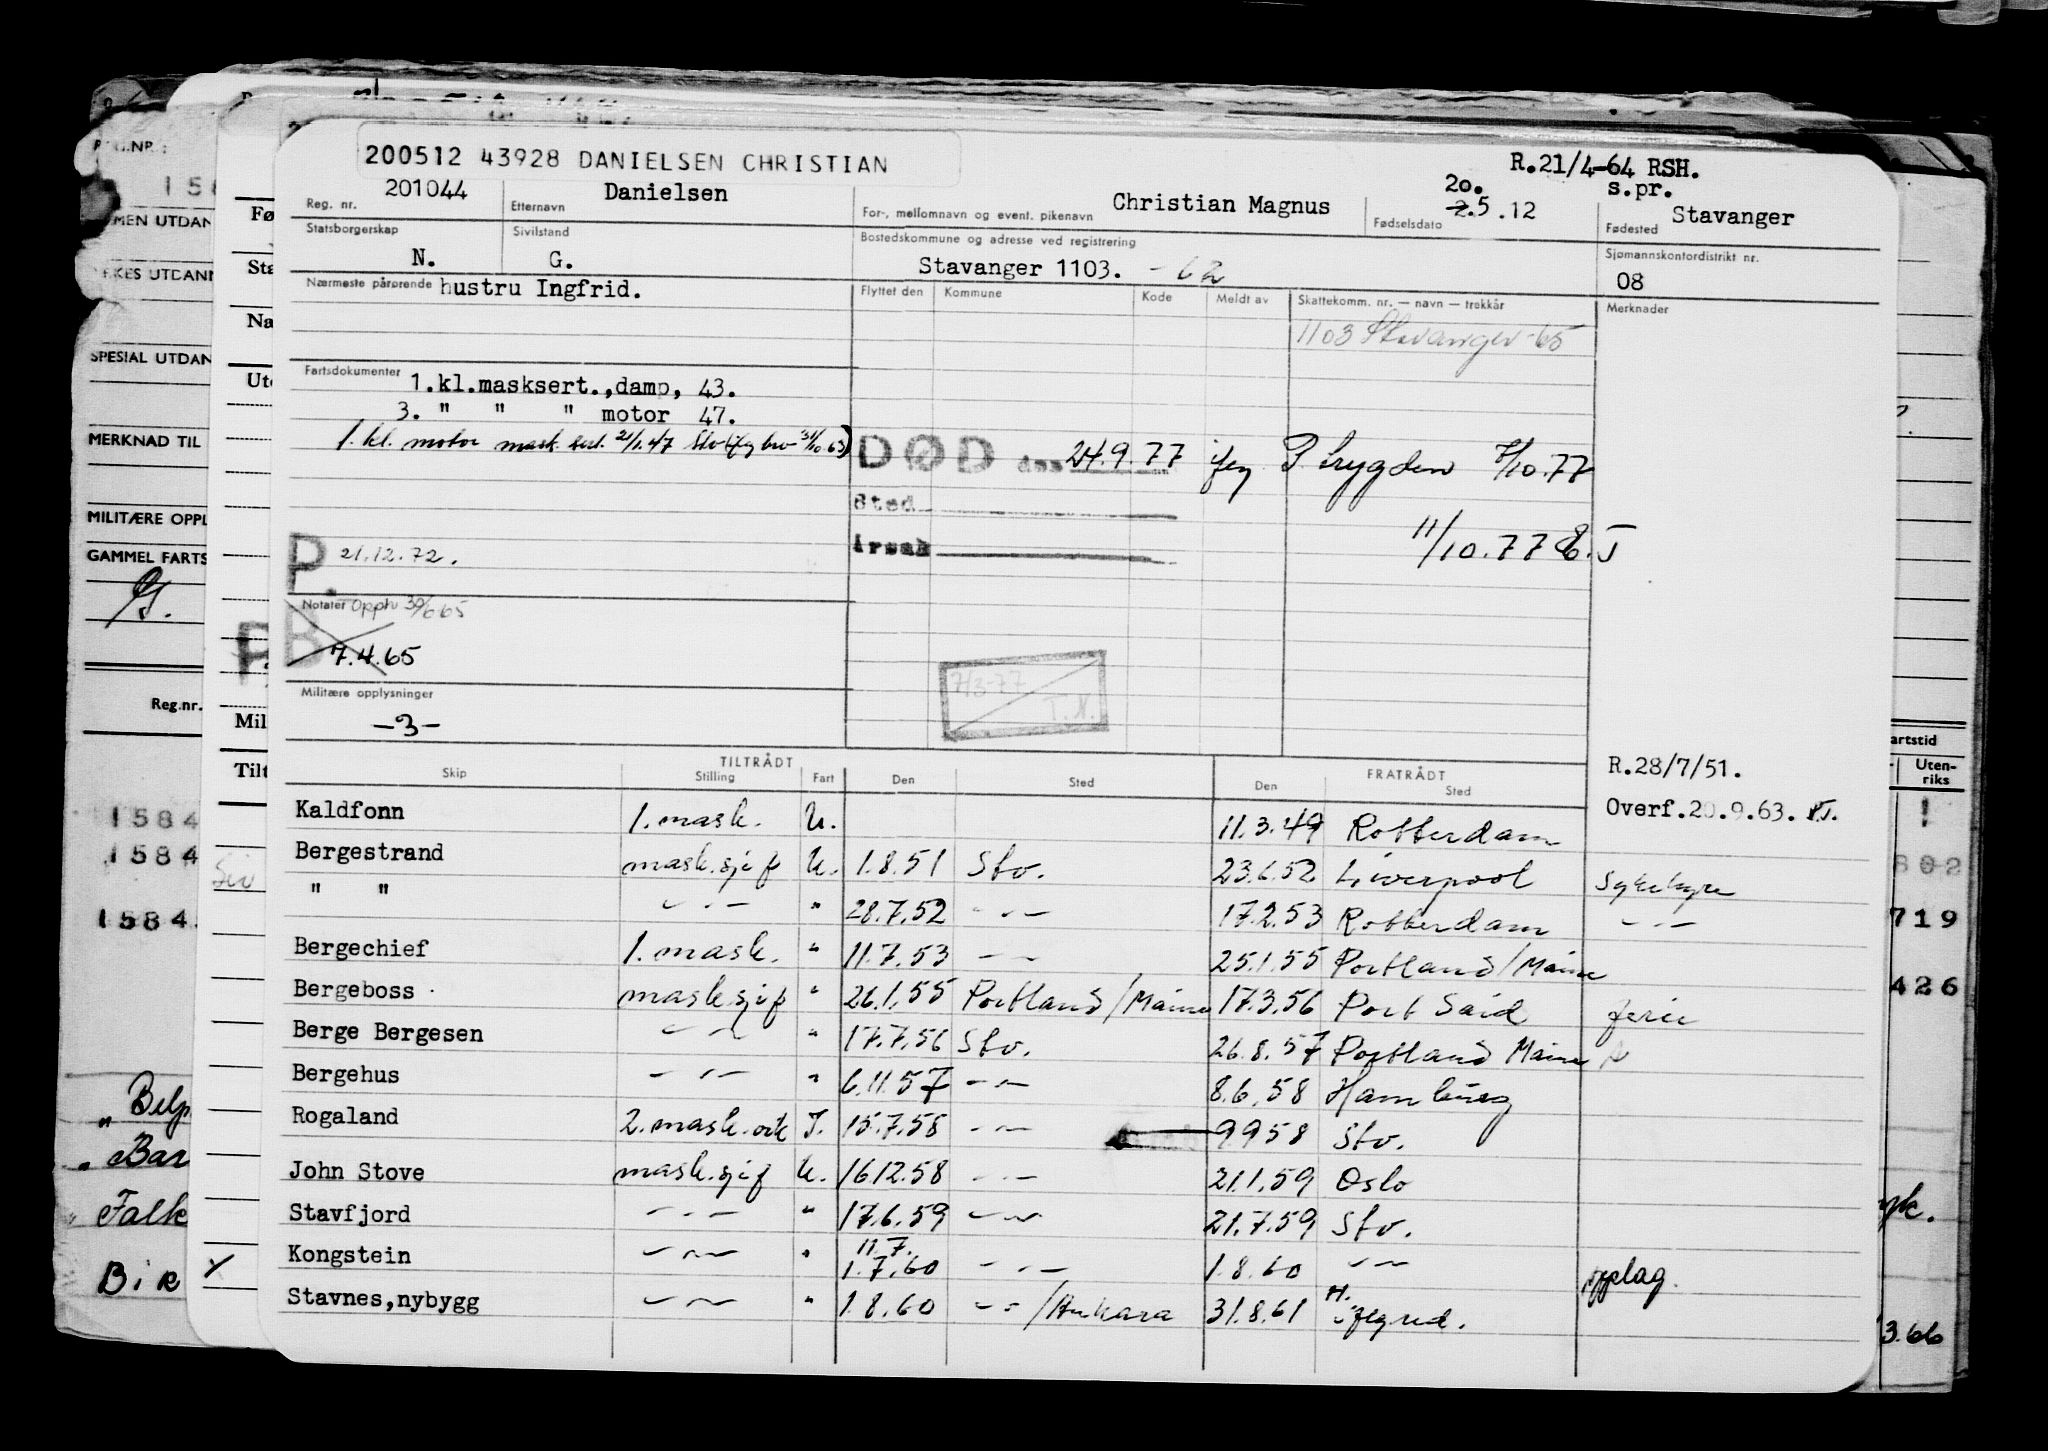 200512 43928 DANIELSEN CHRISTIAN
R.21/4-64 RSH.
s.pr.
Reg. nr. 201044 Etternavn Danielsen For-, mellomnavn og event. pikenavn Christian Magnus Fødselsdato 20. 2.5.12 Fødested Stavanger
Statsborgerskap N. Sivilstand G. Bostedskommune og adresse ved registrering Stavanger 1103. -62 Sjømannskontordistrikt nr. 08
Nærmeste pårørende hustru Ingfrid. Flyttet den Kommune Kode Meldt av Skattekomm. nr. — navn — trekkår Merknader
1103 Stavanger -65
Fartsdokumenter 1.kl.masksert.,damp, 43.
3. " " " motor 47.
1. kl. motor mask. sert. 21/1.47 31/10.63)
DØD den 24.9.77 P. trygden 7/10.77
Sted
Årsak
11/10.77
P. 21.12.72.
Notater Opph 30/6 65
B 7.4.65
7/3-77
T.N.
Militære opplysninger
-3-
R.28/7/51.
Overf.20.9.63.
TILTRÅDT FRATRÅDT
Skip Stilling Fart Den Sted Den Sted
Kaldfonn 1. mask. U. 11.3.49 Rotterdam
Bergestrand mask.sjef U. 1.8.51 Stv. 23.6.52 Liverpool Sykehyre
" " — " — " 28.7.52 — " — 17.2.53 Rotterdam — " —
Bergechief 1. mask. " 11.7.53 — " — 25.1.55 Portland/Maine
Bergeboss mask.sjef " 26.1.55 Portland/Maine 17.3.56 Port Said ferie
Berge Bergesen — " — " 17.7.56 Stv. 26.8.57 Portland Maine
Bergehus — " — " 6.11.57 — " — 8.6.58 Hamburg
Rogaland 2. mask. I. 15.7.58 — " — 9.9.58 Stv.
John Stove mask.sjef U. 16.12.58 — " — 21.1.59 Oslo
Stavfjord — " — " 17.6.59 — " — 21.7.59 Stv.
Kongstein — " — " 11.7. 1.7.60 — " — 1.8.60 — " — opplag.
Stavnes,nybygg — " — " 1.8.60 — " — /Ankara 31.8.61
REG.NR.:
158
SPESIAL UTDAN
MERKNAD TIL
MILITÆRE OPPL
GAMMEL FARTS
Reg.nr.
1584
1584
1584
Bar
Falk
Uten-
riks
802
719
426
3.66